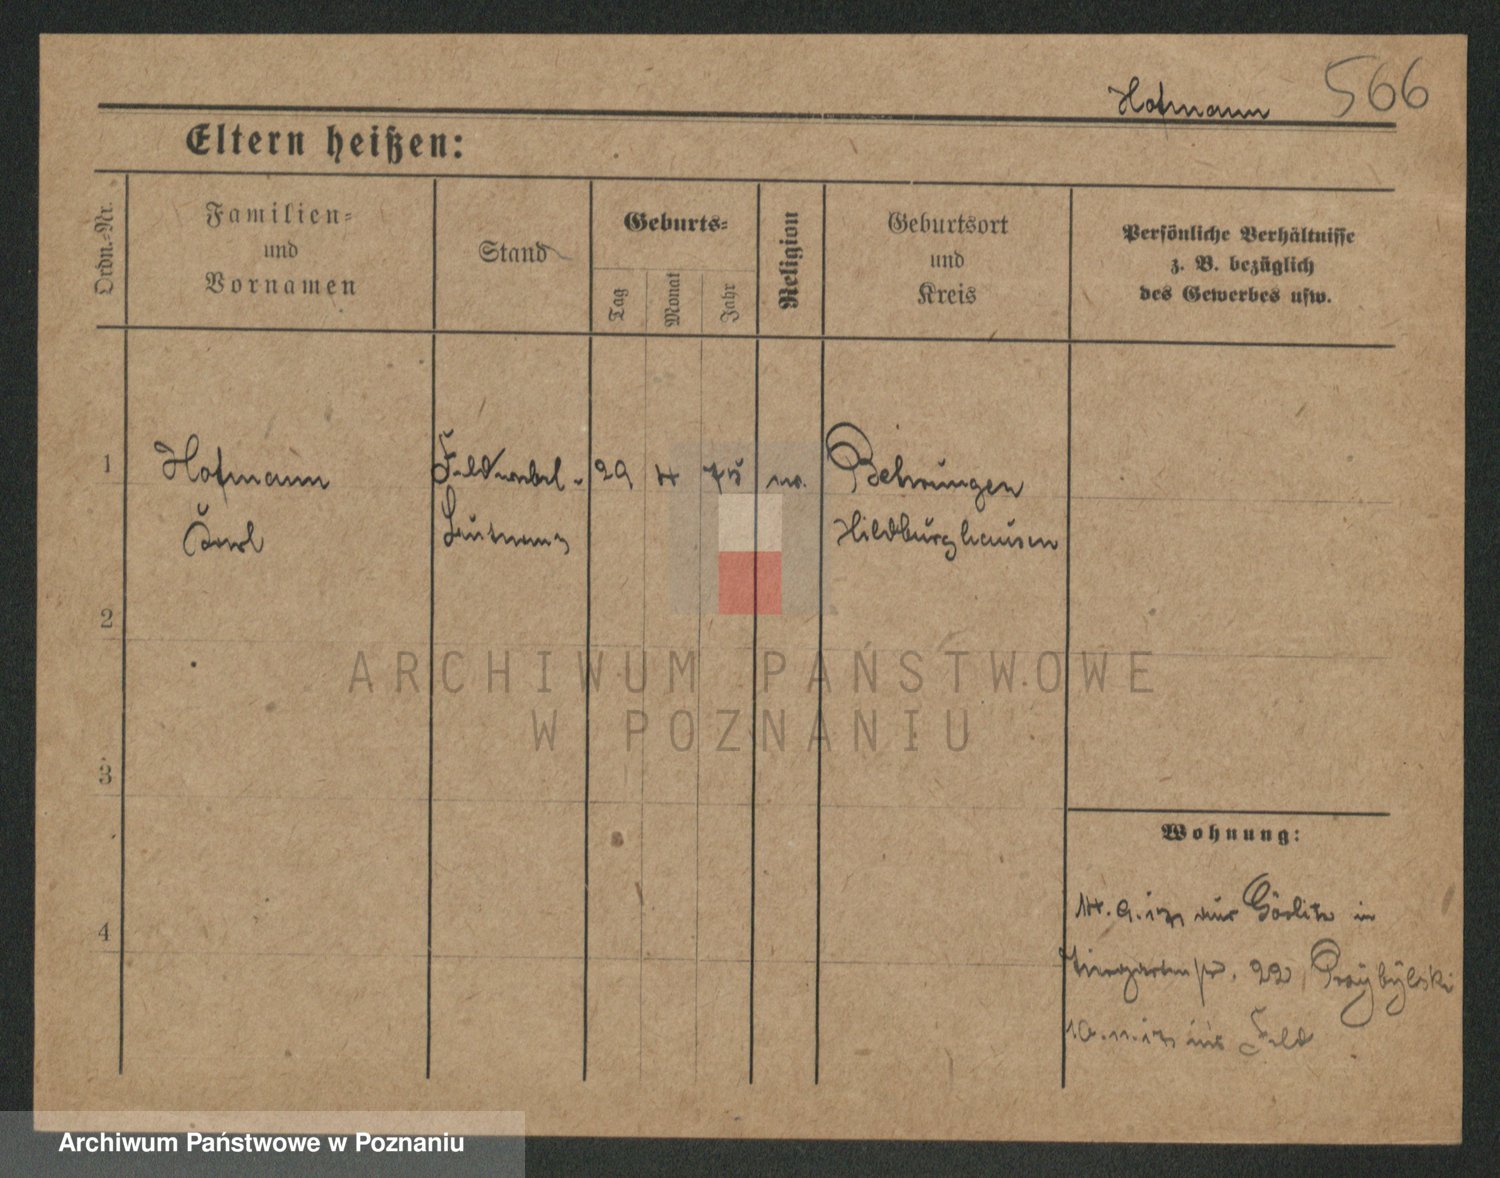 Hofmann 566
Eltern heißen:
Ordn.-Nr.
Familien-
und
Vornamen
Stand
Geburts-
Tag
Monat
Jahr
Religion
Geburtsort
und
Kreis
Persönliche Verhältnisse
z. B. bezüglich
des Gewerbes usw.
1 Hofmann Feldwebel- 29 4 75 ev. Behrungen
Karl Leutnant Hildburghausen
2
ARCHIWUM PAŃSTWOWE
W POZNANIU
3
Wohnung:
14.9.17 aus Görlitz in
4
Tiergartenstr. 22 Przybylski
10.11.17 ins Feld
Archiwum Państwowe w Poznaniu